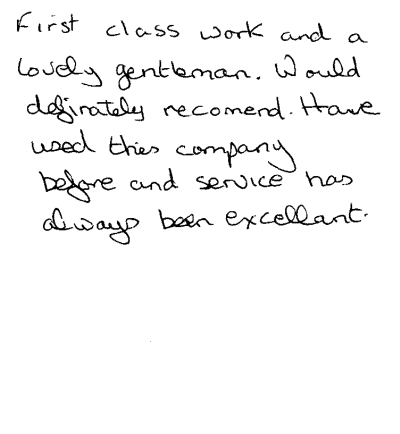 First class work and a
lovely gentleman. Would
definately recomend. Have
used this company
before and service has
always been excellant.